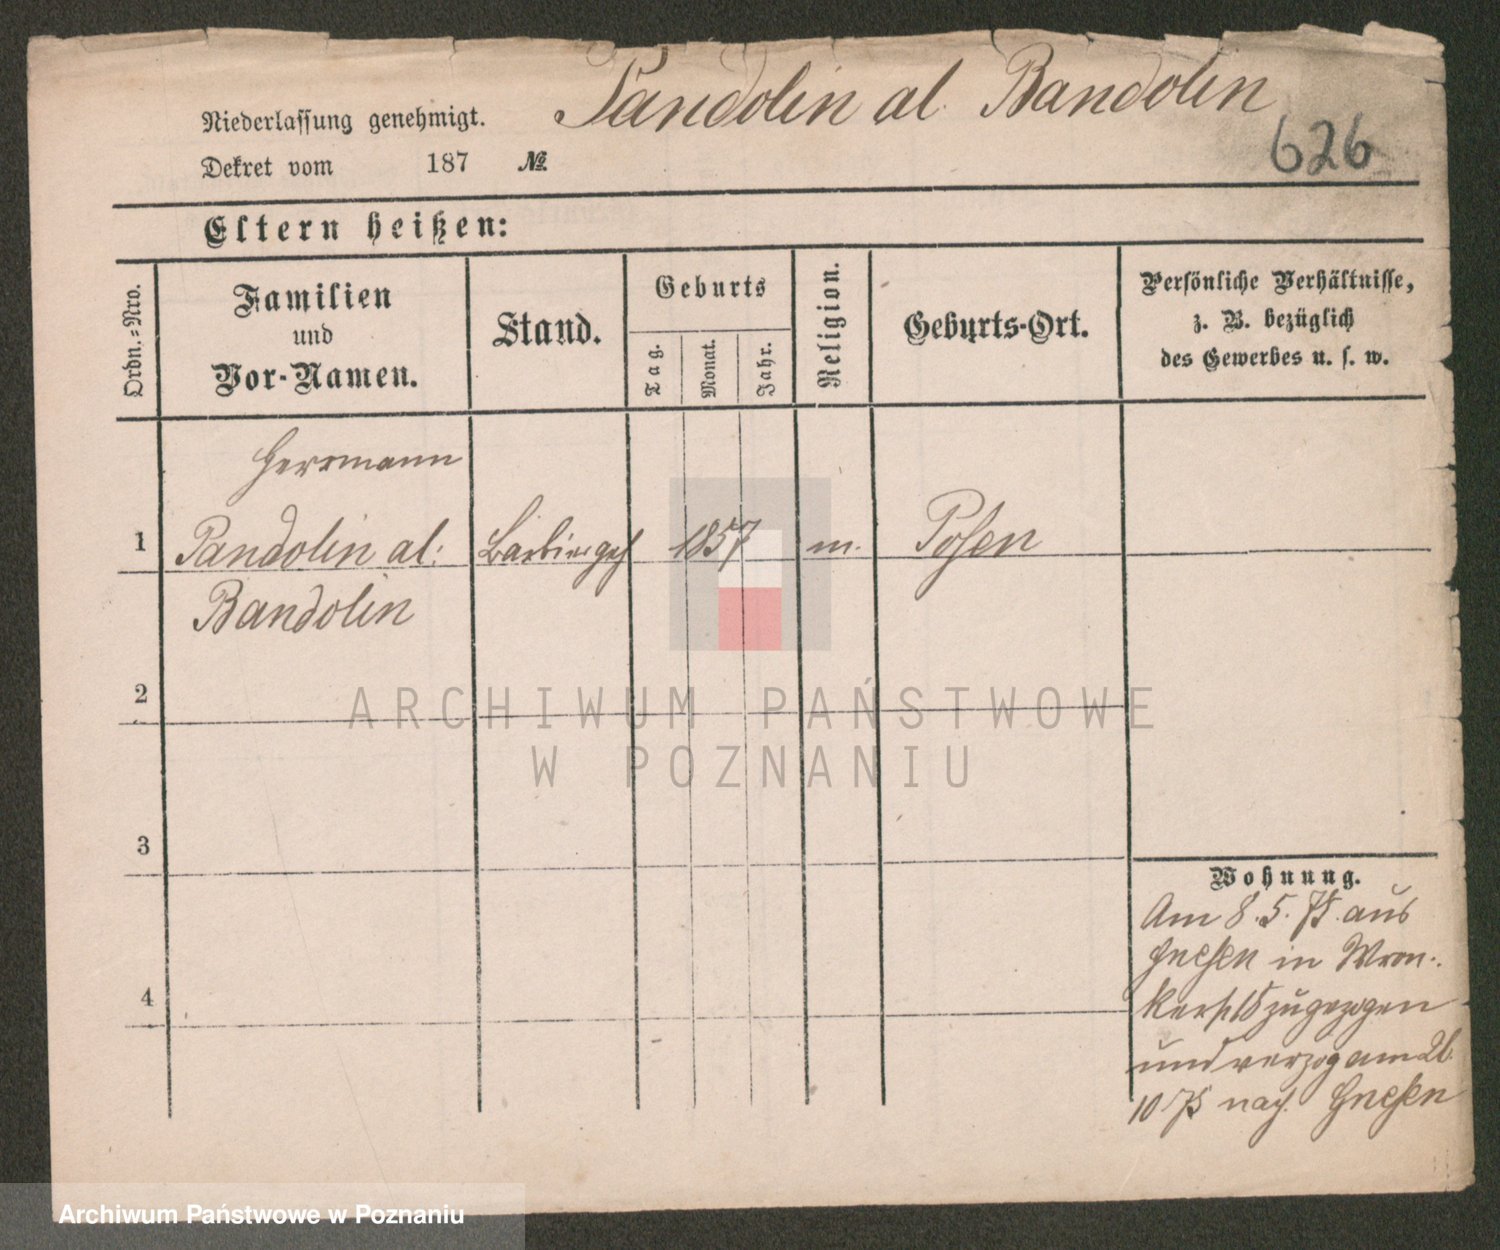 Pandolin al. Bandolin
Niederlassung genehmigt.
626
Dekret vom 187 №
Eltern heißen:
Ordn.-Nro.
Familien
und
Vor-Namen.
Stand.
Geburts
Tag.
Monat.
Jahr.
Religion.
Geburts-Ort.
Persönliche Verhältnisse,
z. B. bezüglich
des Gewerbes u. s. w.
Herrmann
1 Pandolin al: Barbiergeh 1857 m. Posen
Bandolin
2
ARCHIWUM PAŃSTWOWE
W POZNANIU
3
Wohnung.
Am 8. 5. aus
Gnesen in Wron-
zugezogen
und verzog am
10 nach Gnesen
4
Archiwum Państwowe w Poznaniu